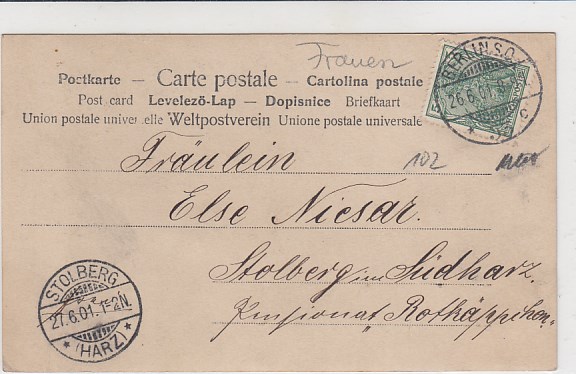 Frauen
Postkarte — Carte postale — Cartolina postale
Post card Levelező-Lap — Dopisnice Briefkaart
Union postale universelle Weltpostverein Unione postale universale
BERLIN S.O.
26.6.01.
c
102
Fräulein
Else Niesar.
Stolberg im Südharz.
Pensionat Rotkäppchen.
STOLBERG
27.6.01. 1-2N.
* (HARZ) *